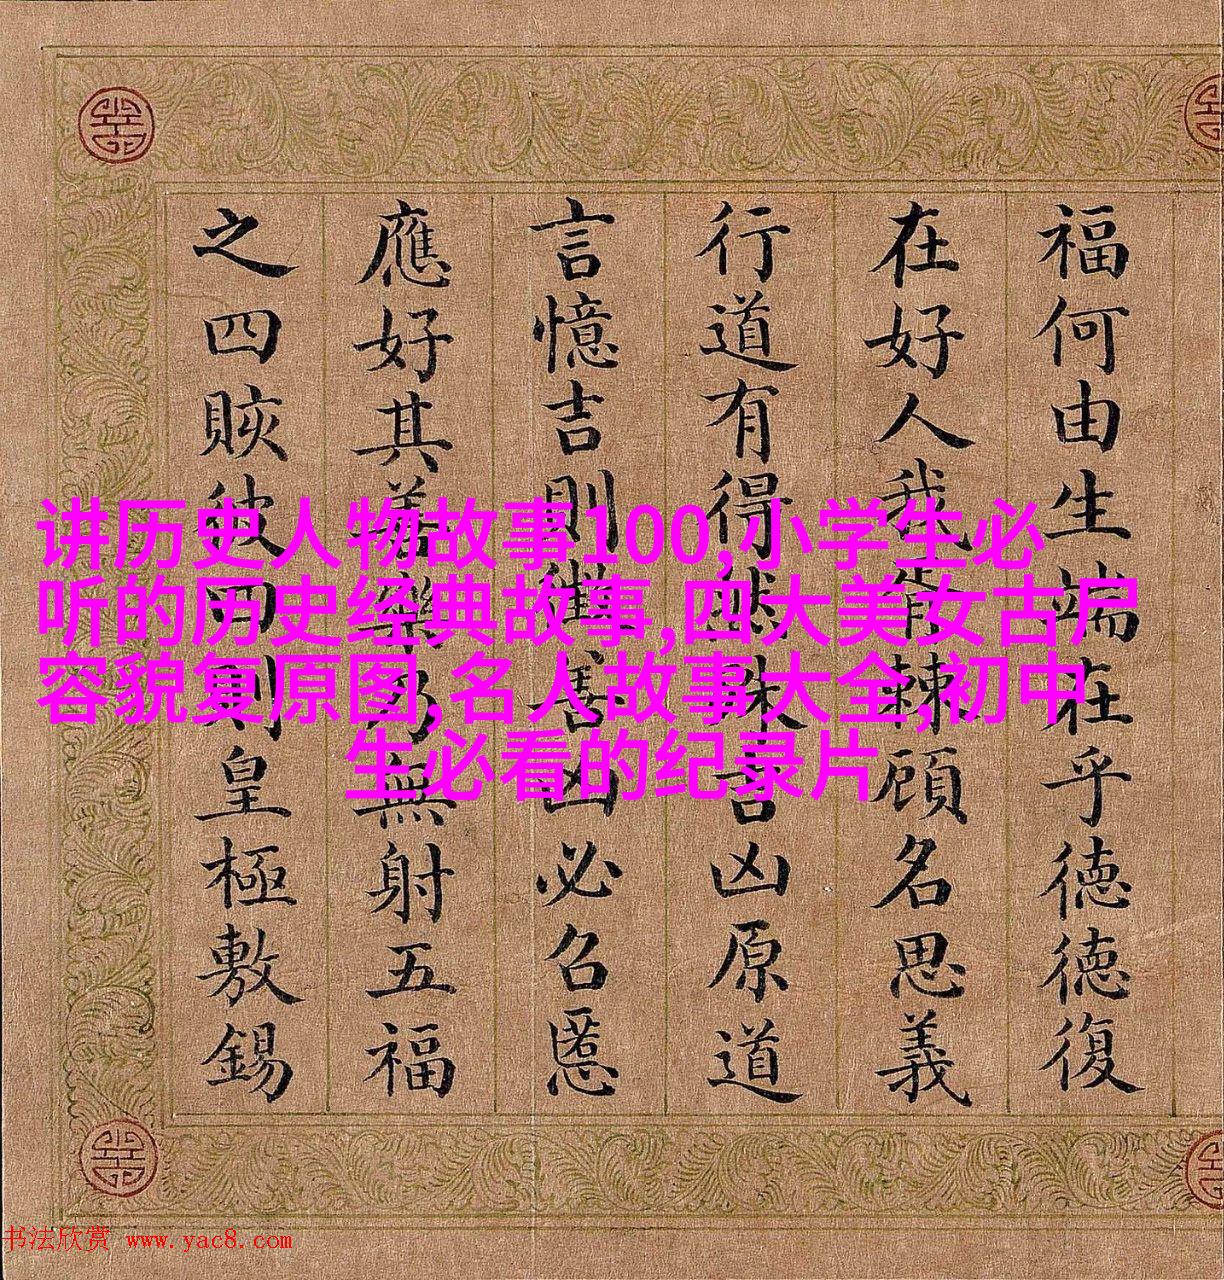 福何由生端在乎德德復
在好人我肯棘顧名思義
行道有得然殊吉凶原道
言憶吉則供善凶必召慝
應好其善樂乃無射五福
之四賅彼四則皇極敷錫
讲历史人物故事100,小学生必
听的历史经典故事,四大美女古尸
容貌复原图,名人故事大全,初中
生必看的纪录片
书法欣赏 www.yac8.com